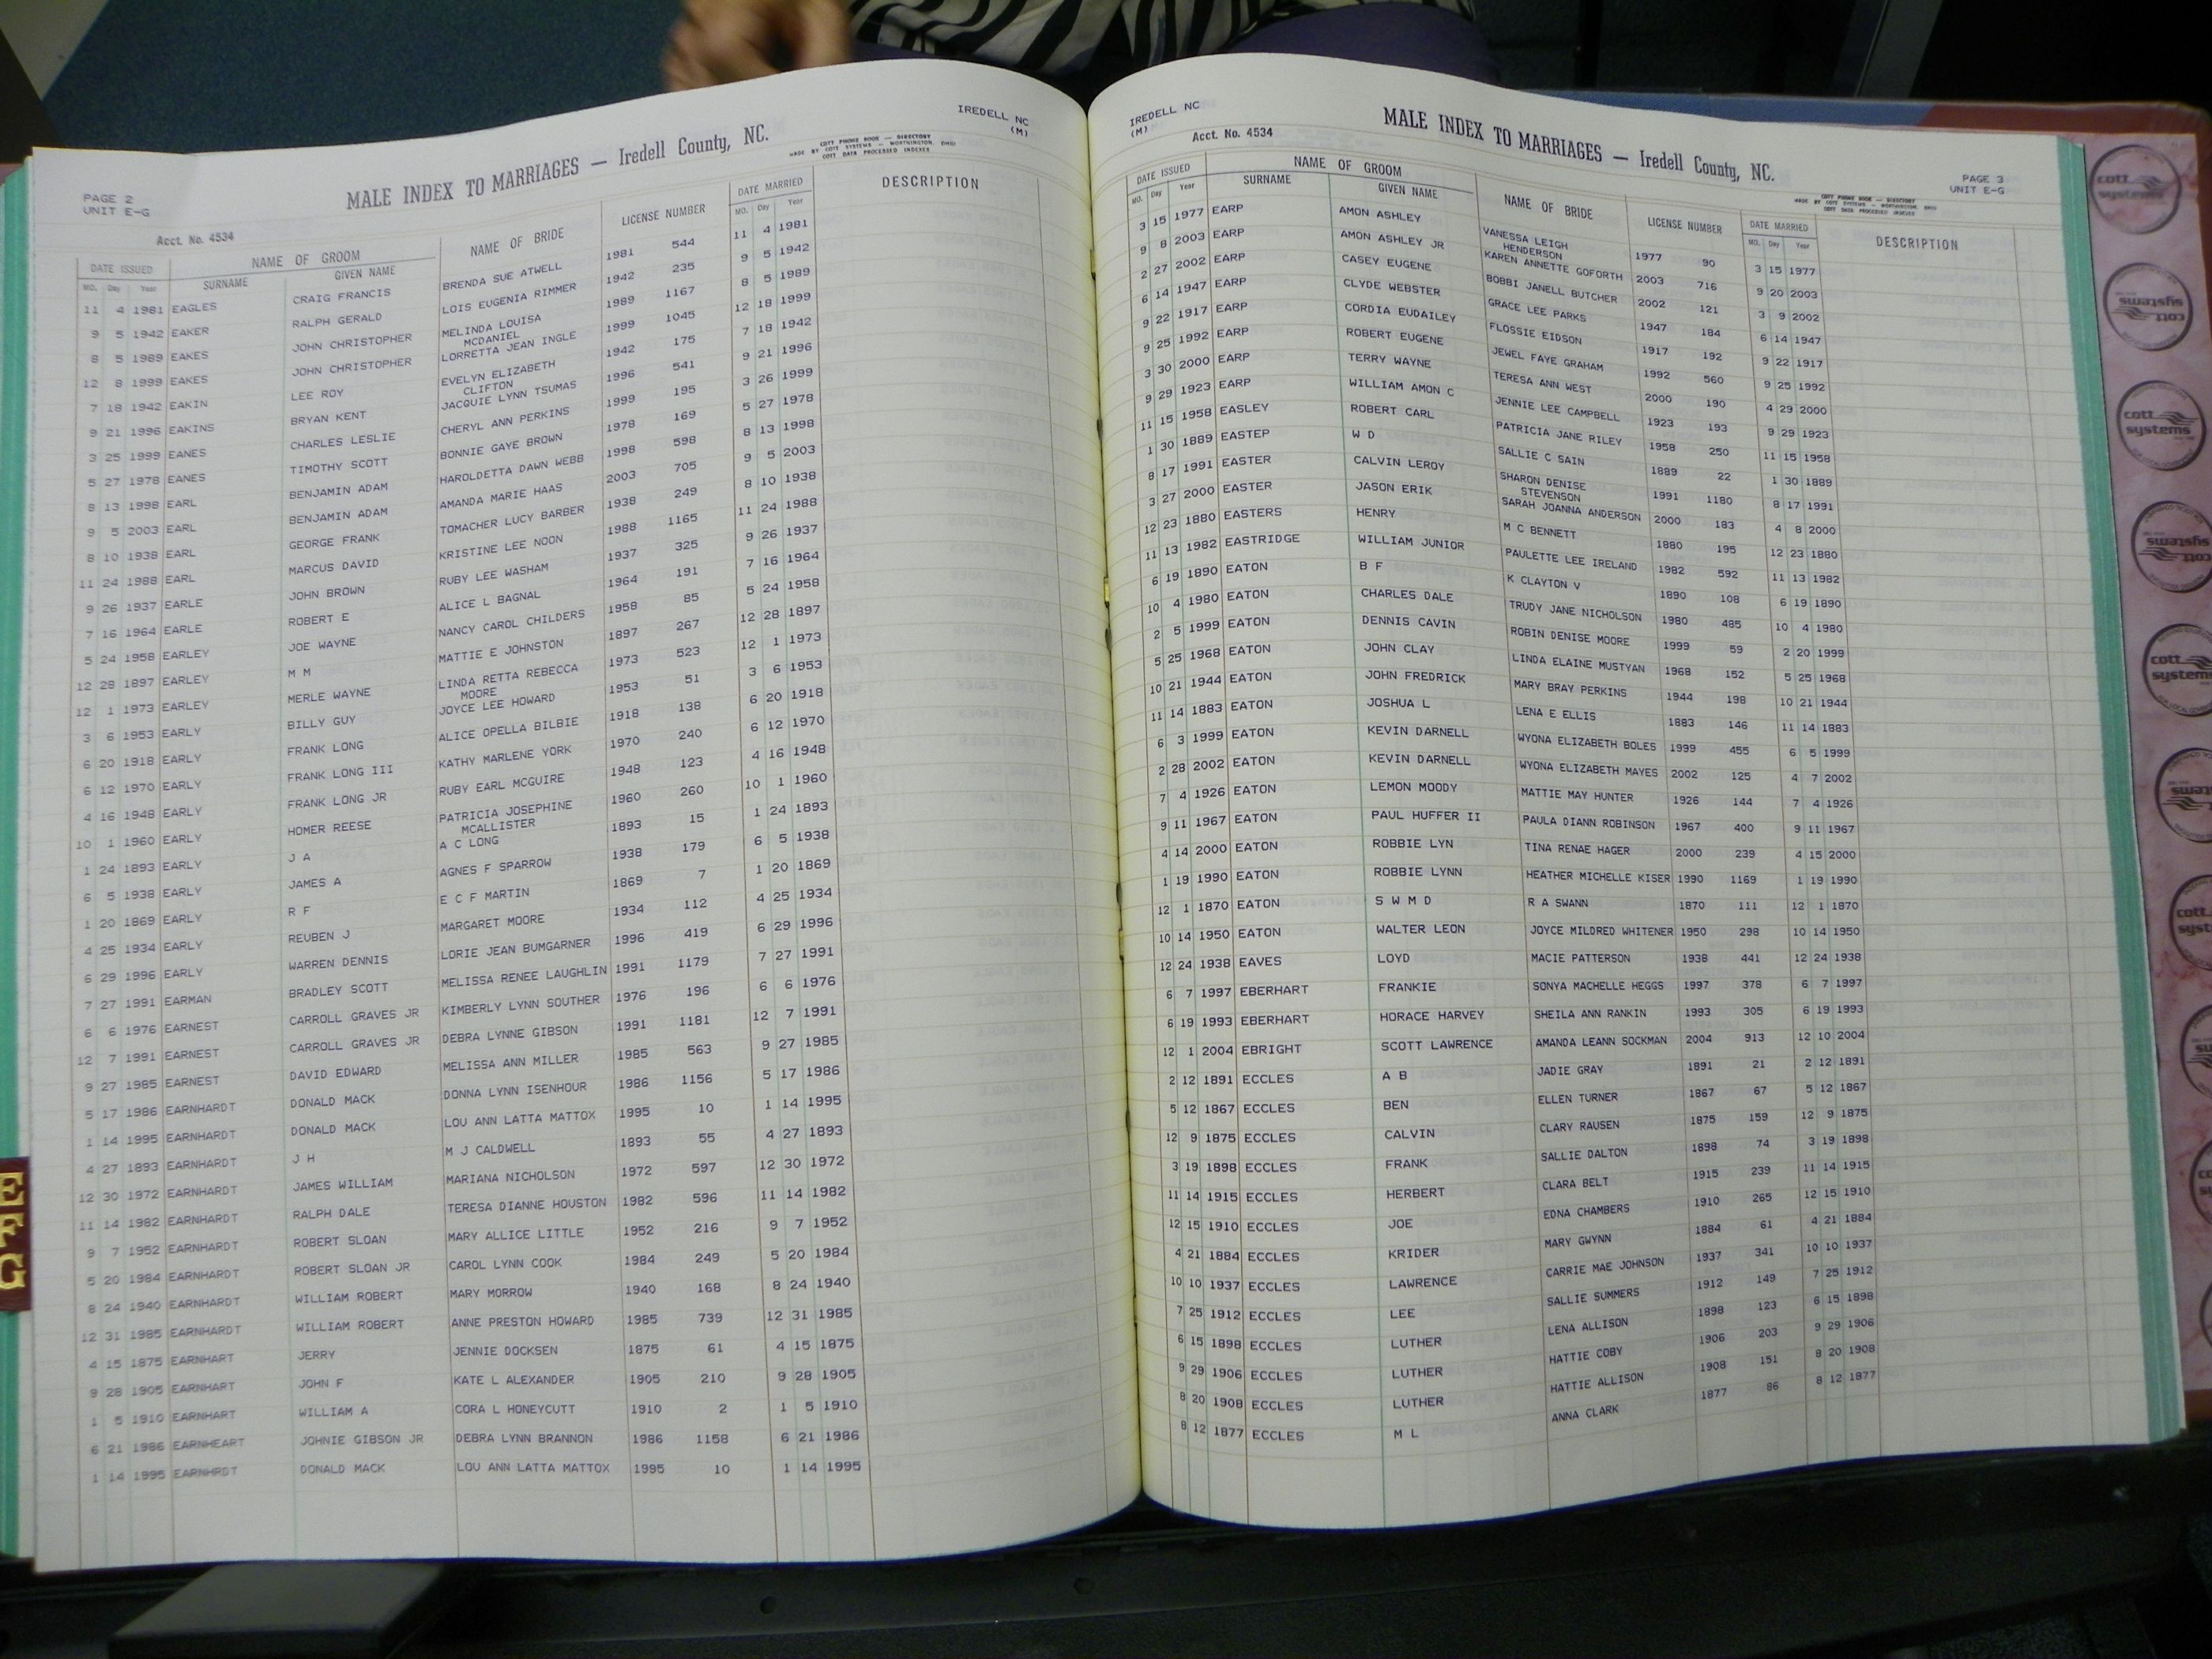 IREDELL NC
(M)
MALE INDEX TO MARRIAGES — Iredell County, NC.
COTT PHONE BOOK — DIRECTORY
MADE BY COTT SYSTEMS — WORTHINGTON, OHIO
COTT DATA PROCESSED INDEXES
PAGE 2
UNIT E-G
Acct. No. 4534
DATE ISSUED NAME OF GROOM NAME OF BRIDE LICENSE NUMBER DATE MARRIED DESCRIPTION
MO. Day Year SURNAME GIVEN NAME MO. Day Year
11 4 1981 EAGLES CRAIG FRANCIS BRENDA SUE ATWELL 1981 544 11 4 1981
9 5 1942 EAKER RALPH GERALD LOIS EUGENIA RIMMER 1942 235 9 5 1942
8 5 1989 EAKES JOHN CHRISTOPHER MELINDA LOUISA 1989 1167 8 5 1989
MCDANIEL
12 8 1999 EAKES JOHN CHRISTOPHER LORRETTA JEAN INGLE 1999 1045 12 18 1999
7 18 1942 EAKIN LEE ROY EVELYN ELIZABETH 1942 175 7 18 1942
CLIFTON
9 21 1996 EAKINS BRYAN KENT JACQUIE LYNN TSUMAS 1996 541 9 21 1996
3 25 1999 EANES CHARLES LESLIE CHERYL ANN PERKINS 1999 195 3 26 1999
5 27 1978 EANES TIMOTHY SCOTT BONNIE GAYE BROWN 1978 169 5 27 1978
8 13 1998 EARL BENJAMIN ADAM HAROLDETTA DAWN WEBB 1998 598 8 13 1998
9 5 2003 EARL BENJAMIN ADAM AMANDA MARIE HAAS 2003 705 9 5 2003
8 10 1938 EARL GEORGE FRANK TOMACHER LUCY BARBER 1938 249 8 10 1938
11 24 1988 EARL MARCUS DAVID KRISTINE LEE NOON 1988 1165 11 24 1988
9 26 1937 EARLE JOHN BROWN RUBY LEE WASHAM 1937 325 9 26 1937
7 16 1964 EARLE ROBERT E ALICE L BAGNAL 1964 191 7 16 1964
5 24 1958 EARLEY JOE WAYNE NANCY CAROL CHILDERS 1958 85 5 24 1958
12 28 1897 EARLEY M M MATTIE E JOHNSTON 1897 267 12 28 1897
12 1 1973 EARLEY MERLE WAYNE LINDA RETTA REBECCA 1973 523 12 1 1973
MOORE
3 6 1953 EARLY BILLY GUY JOYCE LEE HOWARD 1953 51 3 6 1953
6 20 1918 EARLY FRANK LONG ALICE OPELLA BILBIE 1918 138 6 20 1918
6 12 1970 EARLY FRANK LONG III KATHY MARLENE YORK 1970 240 6 12 1970
4 16 1948 EARLY FRANK LONG JR RUBY EARL MCGUIRE 1948 123 4 16 1948
10 1 1960 EARLY HOMER REESE PATRICIA JOSEPHINE 1960 260 10 1 1960
MCALLISTER
1 24 1893 EARLY J A A C LONG 1893 15 1 24 1893
6 5 1938 EARLY JAMES A AGNES F SPARROW 1938 179 6 5 1938
1 20 1869 EARLY R F E C F MARTIN 1869 7 1 20 1869
4 25 1934 EARLY REUBEN J MARGARET MOORE 1934 112 4 25 1934
6 29 1996 EARLY WARREN DENNIS LORIE JEAN BUMGARNER 1996 419 6 29 1996
7 27 1991 EARMAN BRADLEY SCOTT MELISSA RENEE LAUGHLIN 1991 1179 7 27 1991
6 6 1976 EARNEST CARROLL GRAVES JR KIMBERLY LYNN SOUTHER 1976 196 6 6 1976
12 7 1991 EARNEST CARROLL GRAVES JR DEBRA LYNNE GIBSON 1991 1181 12 7 1991
9 27 1985 EARNEST DAVID EDWARD MELISSA ANN MILLER 1985 563 9 27 1985
5 17 1986 EARNHARDT DONALD MACK DONNA LYNN ISENHOUR 1986 1156 5 17 1986
1 14 1995 EARNHARDT DONALD MACK LOU ANN LATTA MATTOX 1995 10 1 14 1995
4 27 1893 EARNHARDT J H M J CALDWELL 1893 55 4 27 1893
12 30 1972 EARNHARDT JAMES WILLIAM MARIANA NICHOLSON 1972 597 12 30 1972
11 14 1982 EARNHARDT RALPH DALE TERESA DIANNE HOUSTON 1982 596 11 14 1982
9 7 1952 EARNHARDT ROBERT SLOAN MARY ALLICE LITTLE 1952 216 9 7 1952
5 20 1984 EARNHARDT ROBERT SLOAN JR CAROL LYNN COOK 1984 249 5 20 1984
8 24 1940 EARNHARDT WILLIAM ROBERT MARY MORROW 1940 168 8 24 1940
12 31 1985 EARNHARDT WILLIAM ROBERT ANNE PRESTON HOWARD 1985 739 12 31 1985
4 15 1875 EARNHART JERRY JENNIE DOCKSEN 1875 61 4 15 1875
9 28 1905 EARNHART JOHN F KATE L ALEXANDER 1905 210 9 28 1905
1 5 1910 EARNHART WILLIAM A CORA L HONEYCUTT 1910 2 1 5 1910
6 21 1986 EARNHEART JOHNIE GIBSON JR DEBRA LYNN BRANNON 1986 1158 6 21 1986
1 14 1995 EARNHRDT DONALD MACK LOU ANN LATTA MATTOX 1995 10 1 14 1995
E
F
G
IREDELL NC
(M)
Acct. No. 4534
MALE INDEX TO MARRIAGES — Iredell County, NC.
PAGE 3
UNIT E-G
COTT PHONE BOOK — DIRECTORY
MADE BY COTT SYSTEMS — WORTHINGTON, OHIO
COTT DATA PROCESSED INDEXES
DATE ISSUED NAME OF GROOM NAME OF BRIDE LICENSE NUMBER DATE MARRIED DESCRIPTION
MO. Day Year SURNAME GIVEN NAME MO. Day Year
3 15 1977 EARP AMON ASHLEY VANESSA LEIGH 1977 90 3 15 1977
HENDERSON
9 8 2003 EARP AMON ASHLEY JR KAREN ANNETTE GOFORTH 2003 716 9 20 2003
2 27 2002 EARP CASEY EUGENE BOBBI JANELL BUTCHER 2002 121 3 9 2002
6 14 1947 EARP CLYDE WEBSTER GRACE LEE PARKS 1947 184 6 14 1947
9 22 1917 EARP CORDIA EUDAILEY FLOSSIE EIDSON 1917 192 9 22 1917
9 25 1992 EARP ROBERT EUGENE JEWEL FAYE GRAHAM 1992 560 9 25 1992
3 30 2000 EARP TERRY WAYNE TERESA ANN WEST 2000 190 4 29 2000
9 29 1923 EARP WILLIAM AMON C JENNIE LEE CAMPBELL 1923 193 9 29 1923
11 15 1958 EASLEY ROBERT CARL PATRICIA JANE RILEY 1958 250 11 15 1958
1 30 1889 EASTEP W D SALLIE C SAIN 1889 22 1 30 1889
8 17 1991 EASTER CALVIN LEROY SHARON DENISE 1991 1180 8 17 1991
STEVENSON
3 27 2000 EASTER JASON ERIK SARAH JOANNA ANDERSON 2000 183 4 8 2000
12 23 1880 EASTERS HENRY M C BENNETT 1880 195 12 23 1880
11 13 1982 EASTRIDGE WILLIAM JUNIOR PAULETTE LEE IRELAND 1982 592 11 13 1982
6 19 1890 EATON B F K CLAYTON V 1890 108 6 19 1890
10 4 1980 EATON CHARLES DALE TRUDY JANE NICHOLSON 1980 485 10 4 1980
2 5 1999 EATON DENNIS CAVIN ROBIN DENISE MOORE 1999 59 2 20 1999
5 25 1968 EATON JOHN CLAY LINDA ELAINE MUSTYAN 1968 152 5 25 1968
10 21 1944 EATON JOHN FREDRICK MARY BRAY PERKINS 1944 198 10 21 1944
11 14 1883 EATON JOSHUA L LENA E ELLIS 1883 146 11 14 1883
6 3 1999 EATON KEVIN DARNELL WYONA ELIZABETH BOLES 1999 455 6 5 1999
2 28 2002 EATON KEVIN DARNELL WYONA ELIZABETH MAYES 2002 125 4 7 2002
7 4 1926 EATON LEMON MOODY MATTIE MAY HUNTER 1926 144 7 4 1926
9 11 1967 EATON PAUL HUFFER II PAULA DIANN ROBINSON 1967 400 9 11 1967
4 14 2000 EATON ROBBIE LYN TINA RENAE HAGER 2000 239 4 15 2000
1 19 1990 EATON ROBBIE LYNN HEATHER MICHELLE KISER 1990 1169 1 19 1990
12 1 1870 EATON S W M D R A SWANN 1870 111 12 1 1870
10 14 1950 EATON WALTER LEON JOYCE MILDRED WHITENER 1950 298 10 14 1950
12 24 1938 EAVES LOYD MACIE PATTERSON 1938 441 12 24 1938
6 7 1997 EBERHART FRANKIE SONYA MACHELLE HEGGS 1997 378 6 7 1997
6 19 1993 EBERHART HORACE HARVEY SHEILA ANN RANKIN 1993 305 6 19 1993
12 1 2004 EBRIGHT SCOTT LAWRENCE AMANDA LEANN SOCKMAN 2004 913 12 10 2004
2 12 1891 ECCLES A B JADIE GRAY 1891 21 2 12 1891
5 12 1867 ECCLES BEN ELLEN TURNER 1867 67 5 12 1867
12 9 1875 ECCLES CALVIN CLARY RAUSEN 1875 159 12 9 1875
3 19 1898 ECCLES FRANK SALLIE DALTON 1898 74 3 19 1898
11 14 1915 ECCLES HERBERT CLARA BELT 1915 239 11 14 1915
12 15 1910 ECCLES JOE EDNA CHAMBERS 1910 265 12 15 1910
4 21 1884 ECCLES KRIDER MARY GWYNN 1884 61 4 21 1884
10 10 1937 ECCLES LAWRENCE CARRIE MAE JOHNSON 1937 341 10 10 1937
7 25 1912 ECCLES LEE SALLIE SUMMERS 1912 149 7 25 1912
6 15 1898 ECCLES LUTHER LENA ALLISON 1898 123 6 15 1898
9 29 1906 ECCLES LUTHER HATTIE COBY 1906 203 9 29 1906
8 20 1908 ECCLES LUTHER HATTIE ALLISON 1908 151 8 20 1908
8 12 1877 ECCLES M L ANNA CLARK 1877 86 8 12 1877
cott
systems
cott
systems
cott
systems
cott
systems
cott
systems